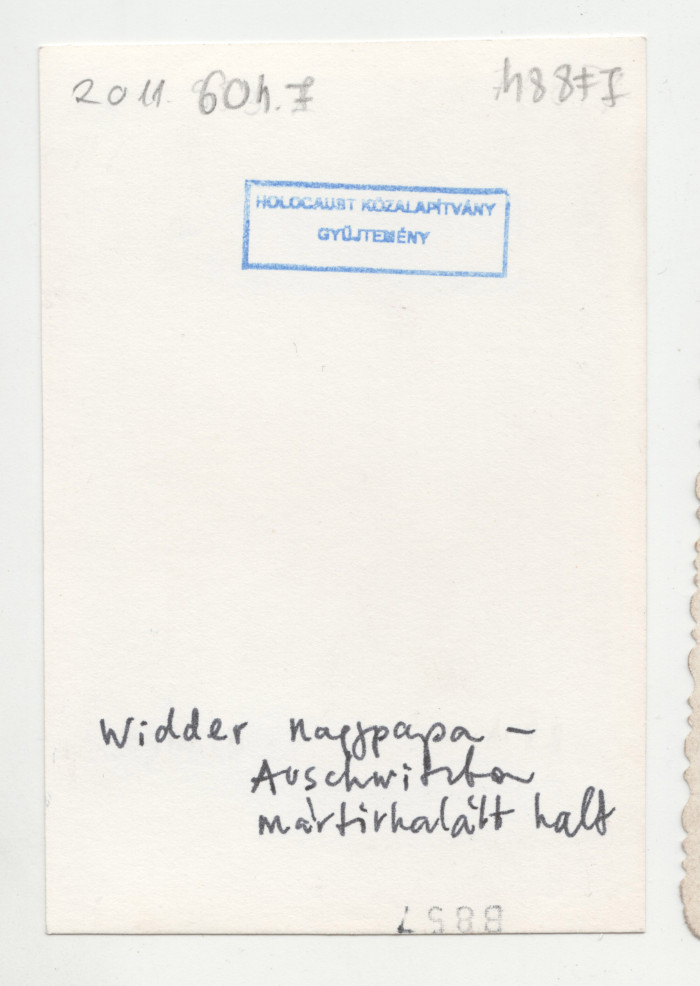 2011.
HOLOCAUST KÖZALAPÍTVÁNY
GYŰJTEMÉNY
Widder nagypapa –
Auschwitzban
mártirhalált halt